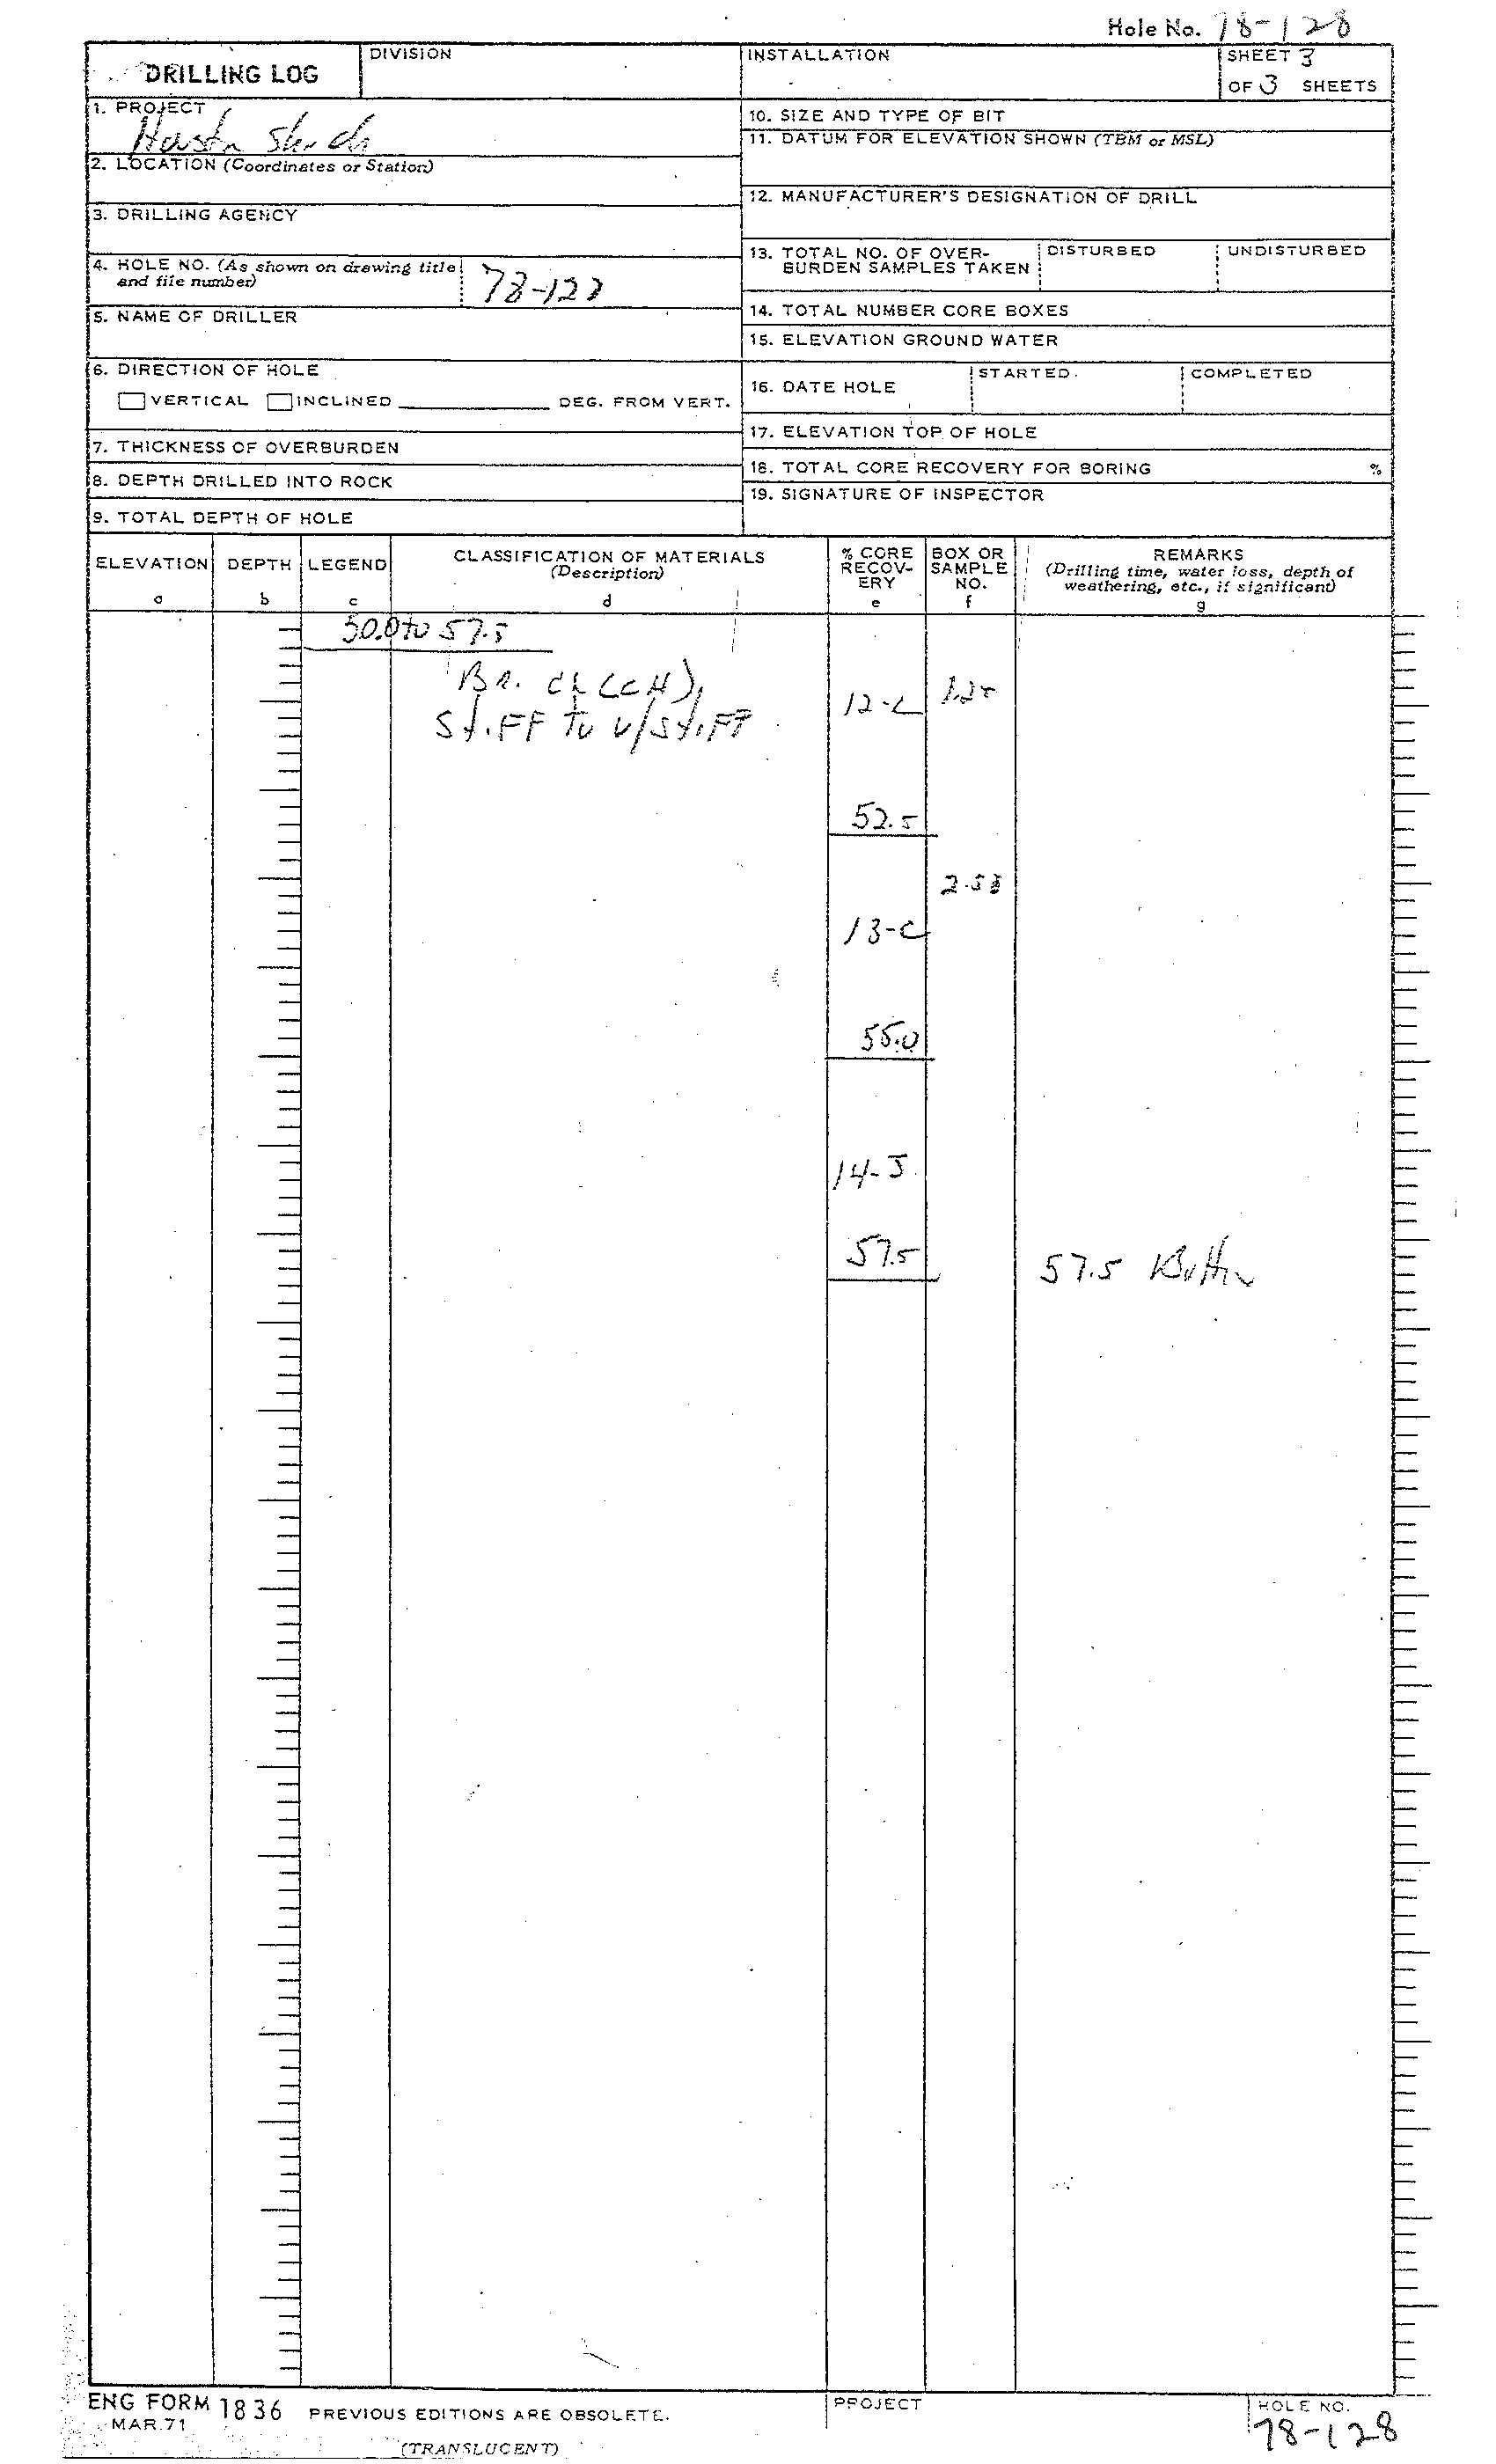 Hole No. 78-128
DRILLING LOG
DIVISION
INSTALLATION
SHEET 3
OF 3 SHEETS
1. PROJECT
10. SIZE AND TYPE OF BIT
11. DATUM FOR ELEVATION SHOWN (TBM or MSL)
2. LOCATION (Coordinates or Station)
12. MANUFACTURER'S DESIGNATION OF DRILL
3. DRILLING AGENCY
13. TOTAL NO. OF OVER-
BURDEN SAMPLES TAKEN
DISTURBED
UNDISTURBED
4. HOLE NO. (As shown on drawing title
and file number)
78-128
14. TOTAL NUMBER CORE BOXES
5. NAME OF DRILLER
15. ELEVATION GROUND WATER
6. DIRECTION OF HOLE
VERTICAL INCLINED DEG. FROM VERT.
16. DATE HOLE
STARTED
COMPLETED
17. ELEVATION TOP OF HOLE
7. THICKNESS OF OVERBURDEN
18. TOTAL CORE RECOVERY FOR BORING %
8. DEPTH DRILLED INTO ROCK
19. SIGNATURE OF INSPECTOR
9. TOTAL DEPTH OF HOLE
ELEVATION
a
DEPTH
b
LEGEND
c
CLASSIFICATION OF MATERIALS
(Description)
d
% CORE
RECOV-
ERY
e
BOX OR
SAMPLE
NO.
f
REMARKS
(Drilling time, water loss, depth of
weathering, etc., if significant)
g
50.0 to 57.5
Br. CL (CH),
Stiff To v/Stiff
12-C
52.5
2.53
13-C
55.0
14-J
57.5
57.5 Bottom
ENG FORM 1836 PREVIOUS EDITIONS ARE OBSOLETE.
MAR 71
(TRANSLUCENT)
PROJECT
HOLE NO.
78-128